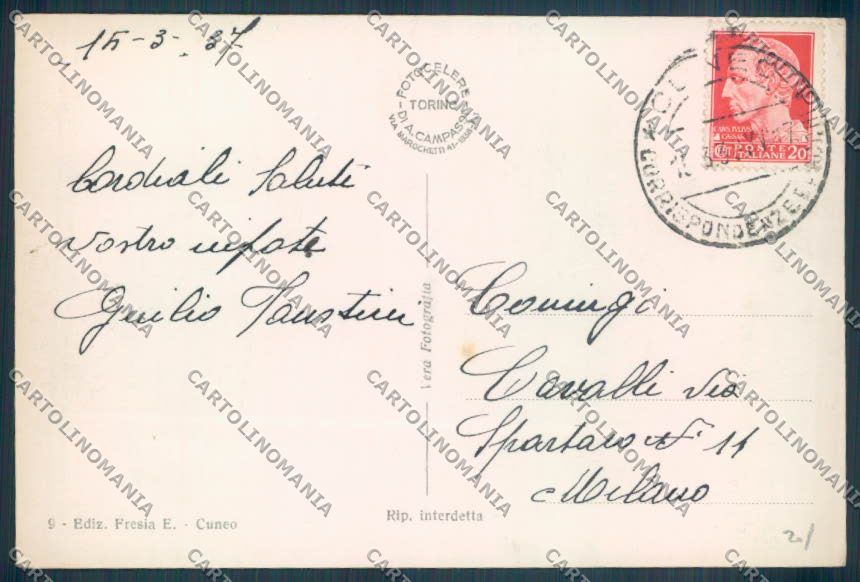 15-3-37
Cordiali Saluti
Vostro nipote
Giulio Faustini
FOTOCELERE
TORINO
DI A. CAMPASSI
VIA MAROCHETTI 41
CAIVS IVLIVS
CAESAR
POSTE
ITALIANE 20
CORRISPONDENZE E PACCHI
Vera Fotografia
Coniugi
Cavalli Via
Spartaco No 11
Milano
9 - Ediz. Fresia E. - Cuneo
Rip. interdetta
20/
CARTOLINOMANIA